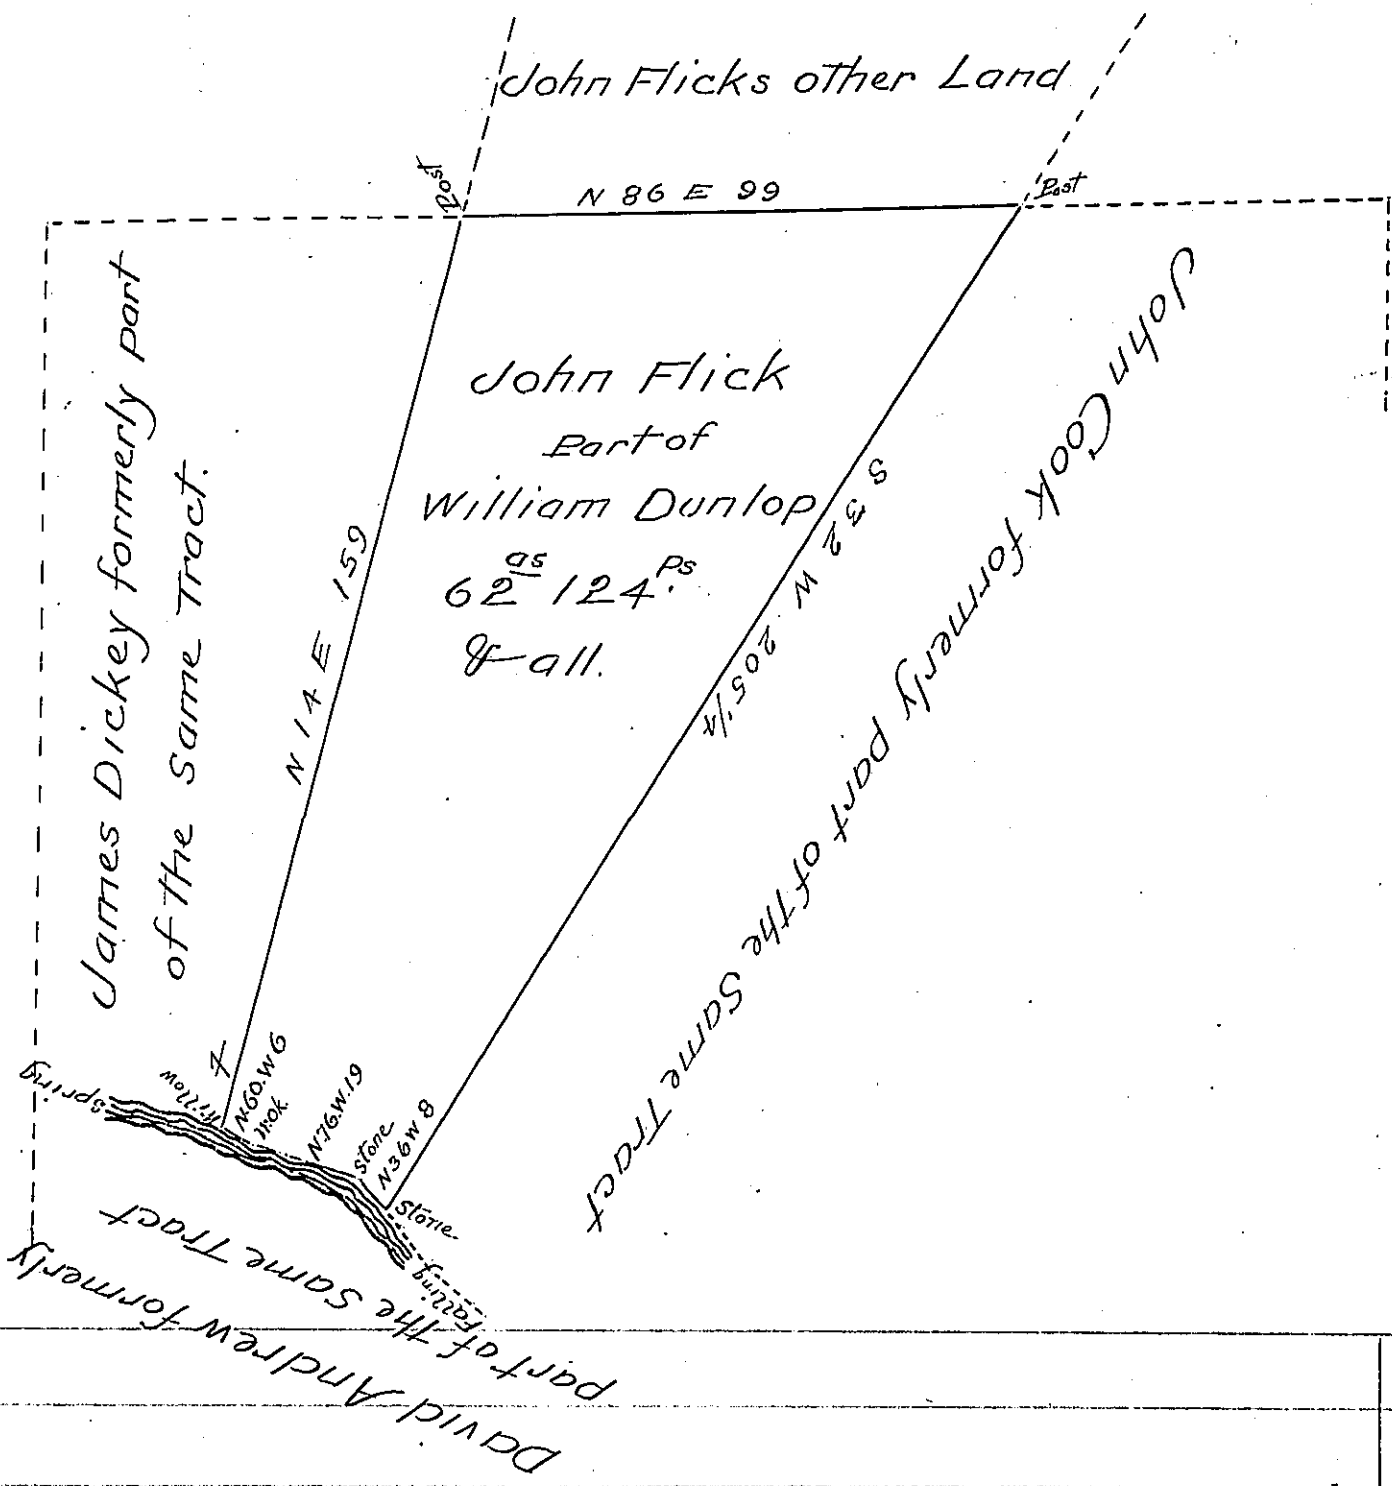 John Flicks other Land
Post
N 86 E 99
Post
James Dickey formerly part
of the Same Tract.
John Flick
Part of
William Dunlop
62 as 124 Ps.
& all.
N 14 E 159
S 32 W 205 1/4
John Cook formerly part of the Same Tract
7
Spring
Willow
N.60.W 6
W.ok.
N.76.W.19
Stone
N 36 W 8
Stone
Falling
David Andrew formerly
part of the Same Tract